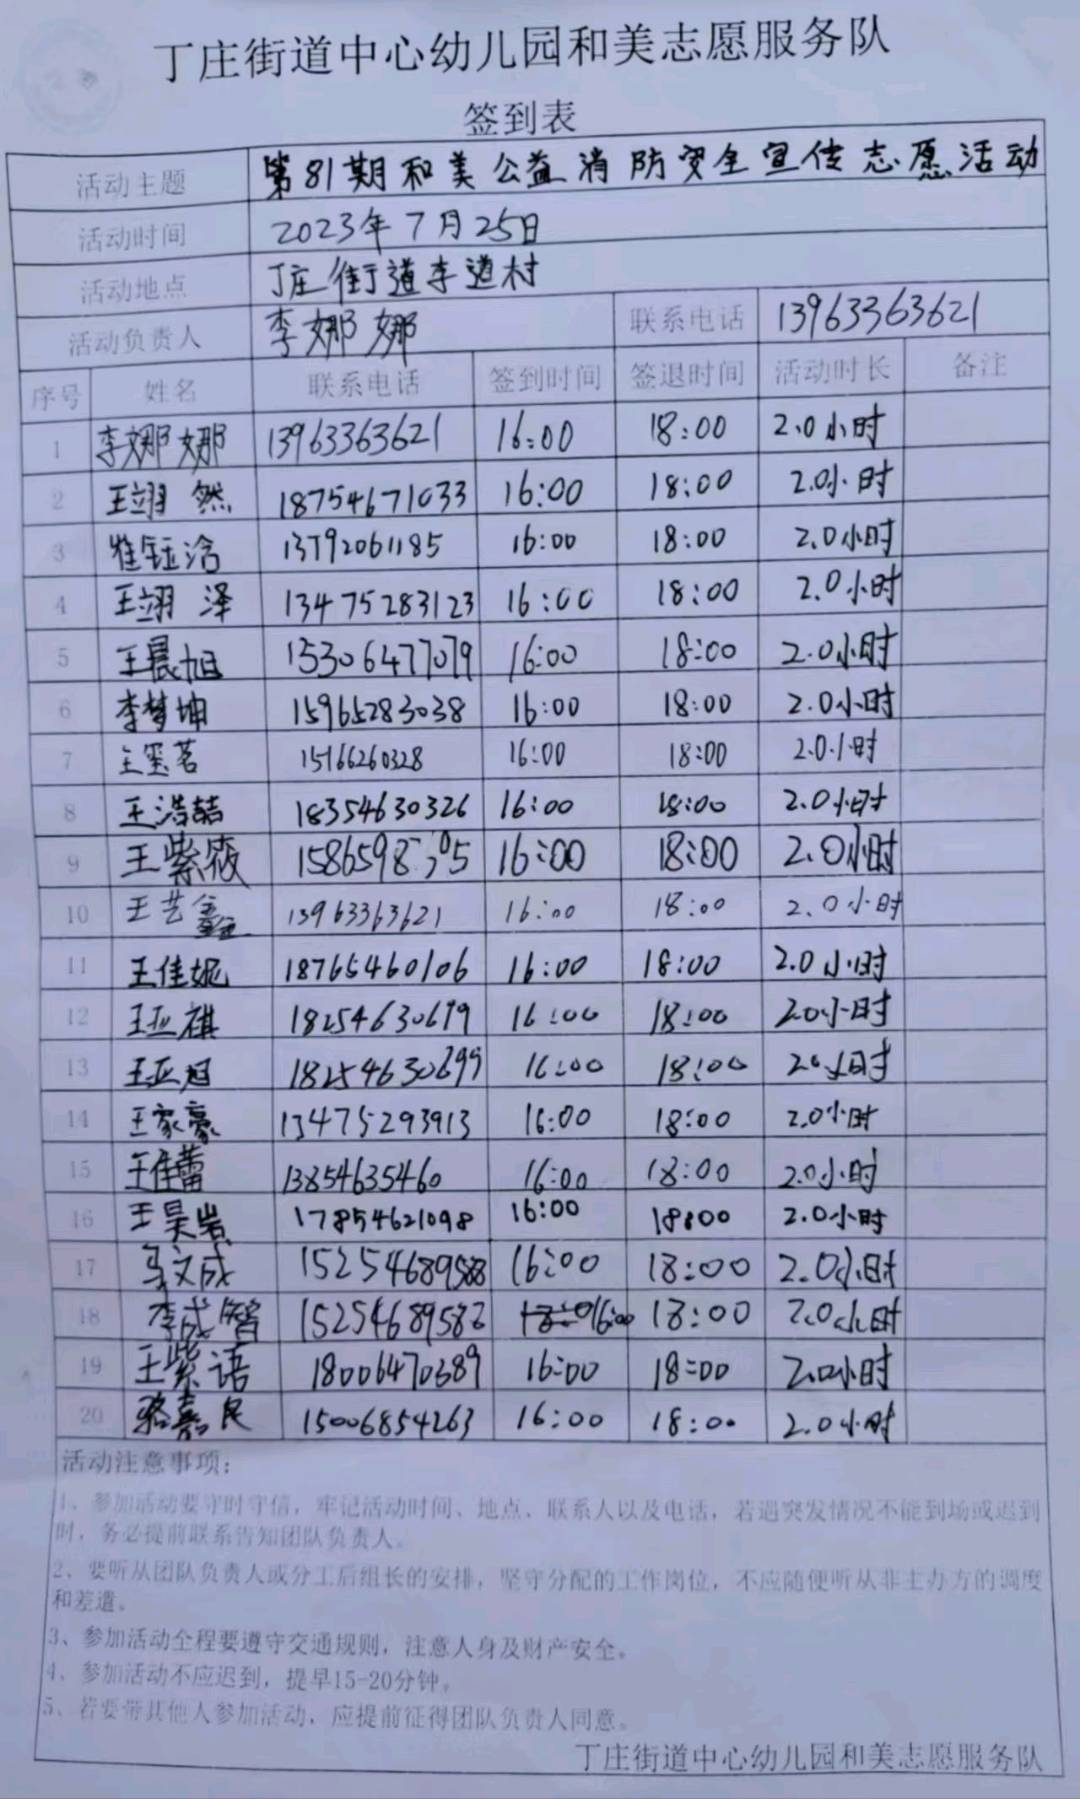 丁庄街道中心幼儿园和美志愿服务队
签到表
活动主题 第81期和美公益消防安全宣传志愿活动
活动时间 2023年7月25日
活动地点 丁庄街道李道村
活动负责人 李娜娜 联系电话 13963363621
序号 姓名 联系电话 签到时间 签退时间 活动时长 备注
1 李娜娜 13963363621 16:00 18:00 2.0小时
2 王翊然 18754671033 16:00 18:00 2.0小时
3 崔钰涵 13792061185 16:00 18:00 2.0小时
4 王翊泽 13475283123 16:00 18:00 2.0小时
5 王晨旭 15306477079 16:00 18:00 2.0小时
6 李梦坤 15965283038 16:00 18:00 2.0小时
7 王玺茗 15166260328 16:00 18:00 2.0小时
8 王浩喆 18354630326 16:00 18:00 2.0小时
9 王紫薇 16:00 18:00 2.0小时
10 王艺鑫 13963363621 16:00 18:00 2.0小时
11 王佳妮 18765460106 16:00 18:00 2.0小时
12 王亚祺 18254630699 16:00 18:00 2.0小时
13 王亚冠 18254630699 16:00 18:00 2.0小时
14 王家豪 13475293913 16:00 18:00 2.0小时
15 王佳蕾 13854635460 16:00 18:00 2.0小时
16 王昊岩 17854621098 16:00 18:00 2.0小时
17 马文成 15254689588 16:00 18:00 2.0小时
18 李成智 16:00 18:00 2.0小时
19 王紫语 18006470389 16:00 18:00 2.0小时
20 骆嘉民 15006854263 16:00 18:00 2.0小时
活动注意事项：
1、参加活动要守时守信，牢记活动时间、地点、联系人以及电话，若遇突发情况不能到场或迟到
时，务必提前联系告知团队负责人。
2、要听从团队负责人或分工后组长的安排，坚守分配的工作岗位，不应随便听从非主办方的调度
和差遣。
3、参加活动全程要遵守交通规则，注意人身及财产安全。
4、参加活动不应迟到，提早15-20分钟。
5、若要带其他人参加活动，应提前征得团队负责人同意。
丁庄街道中心幼儿园和美志愿服务队